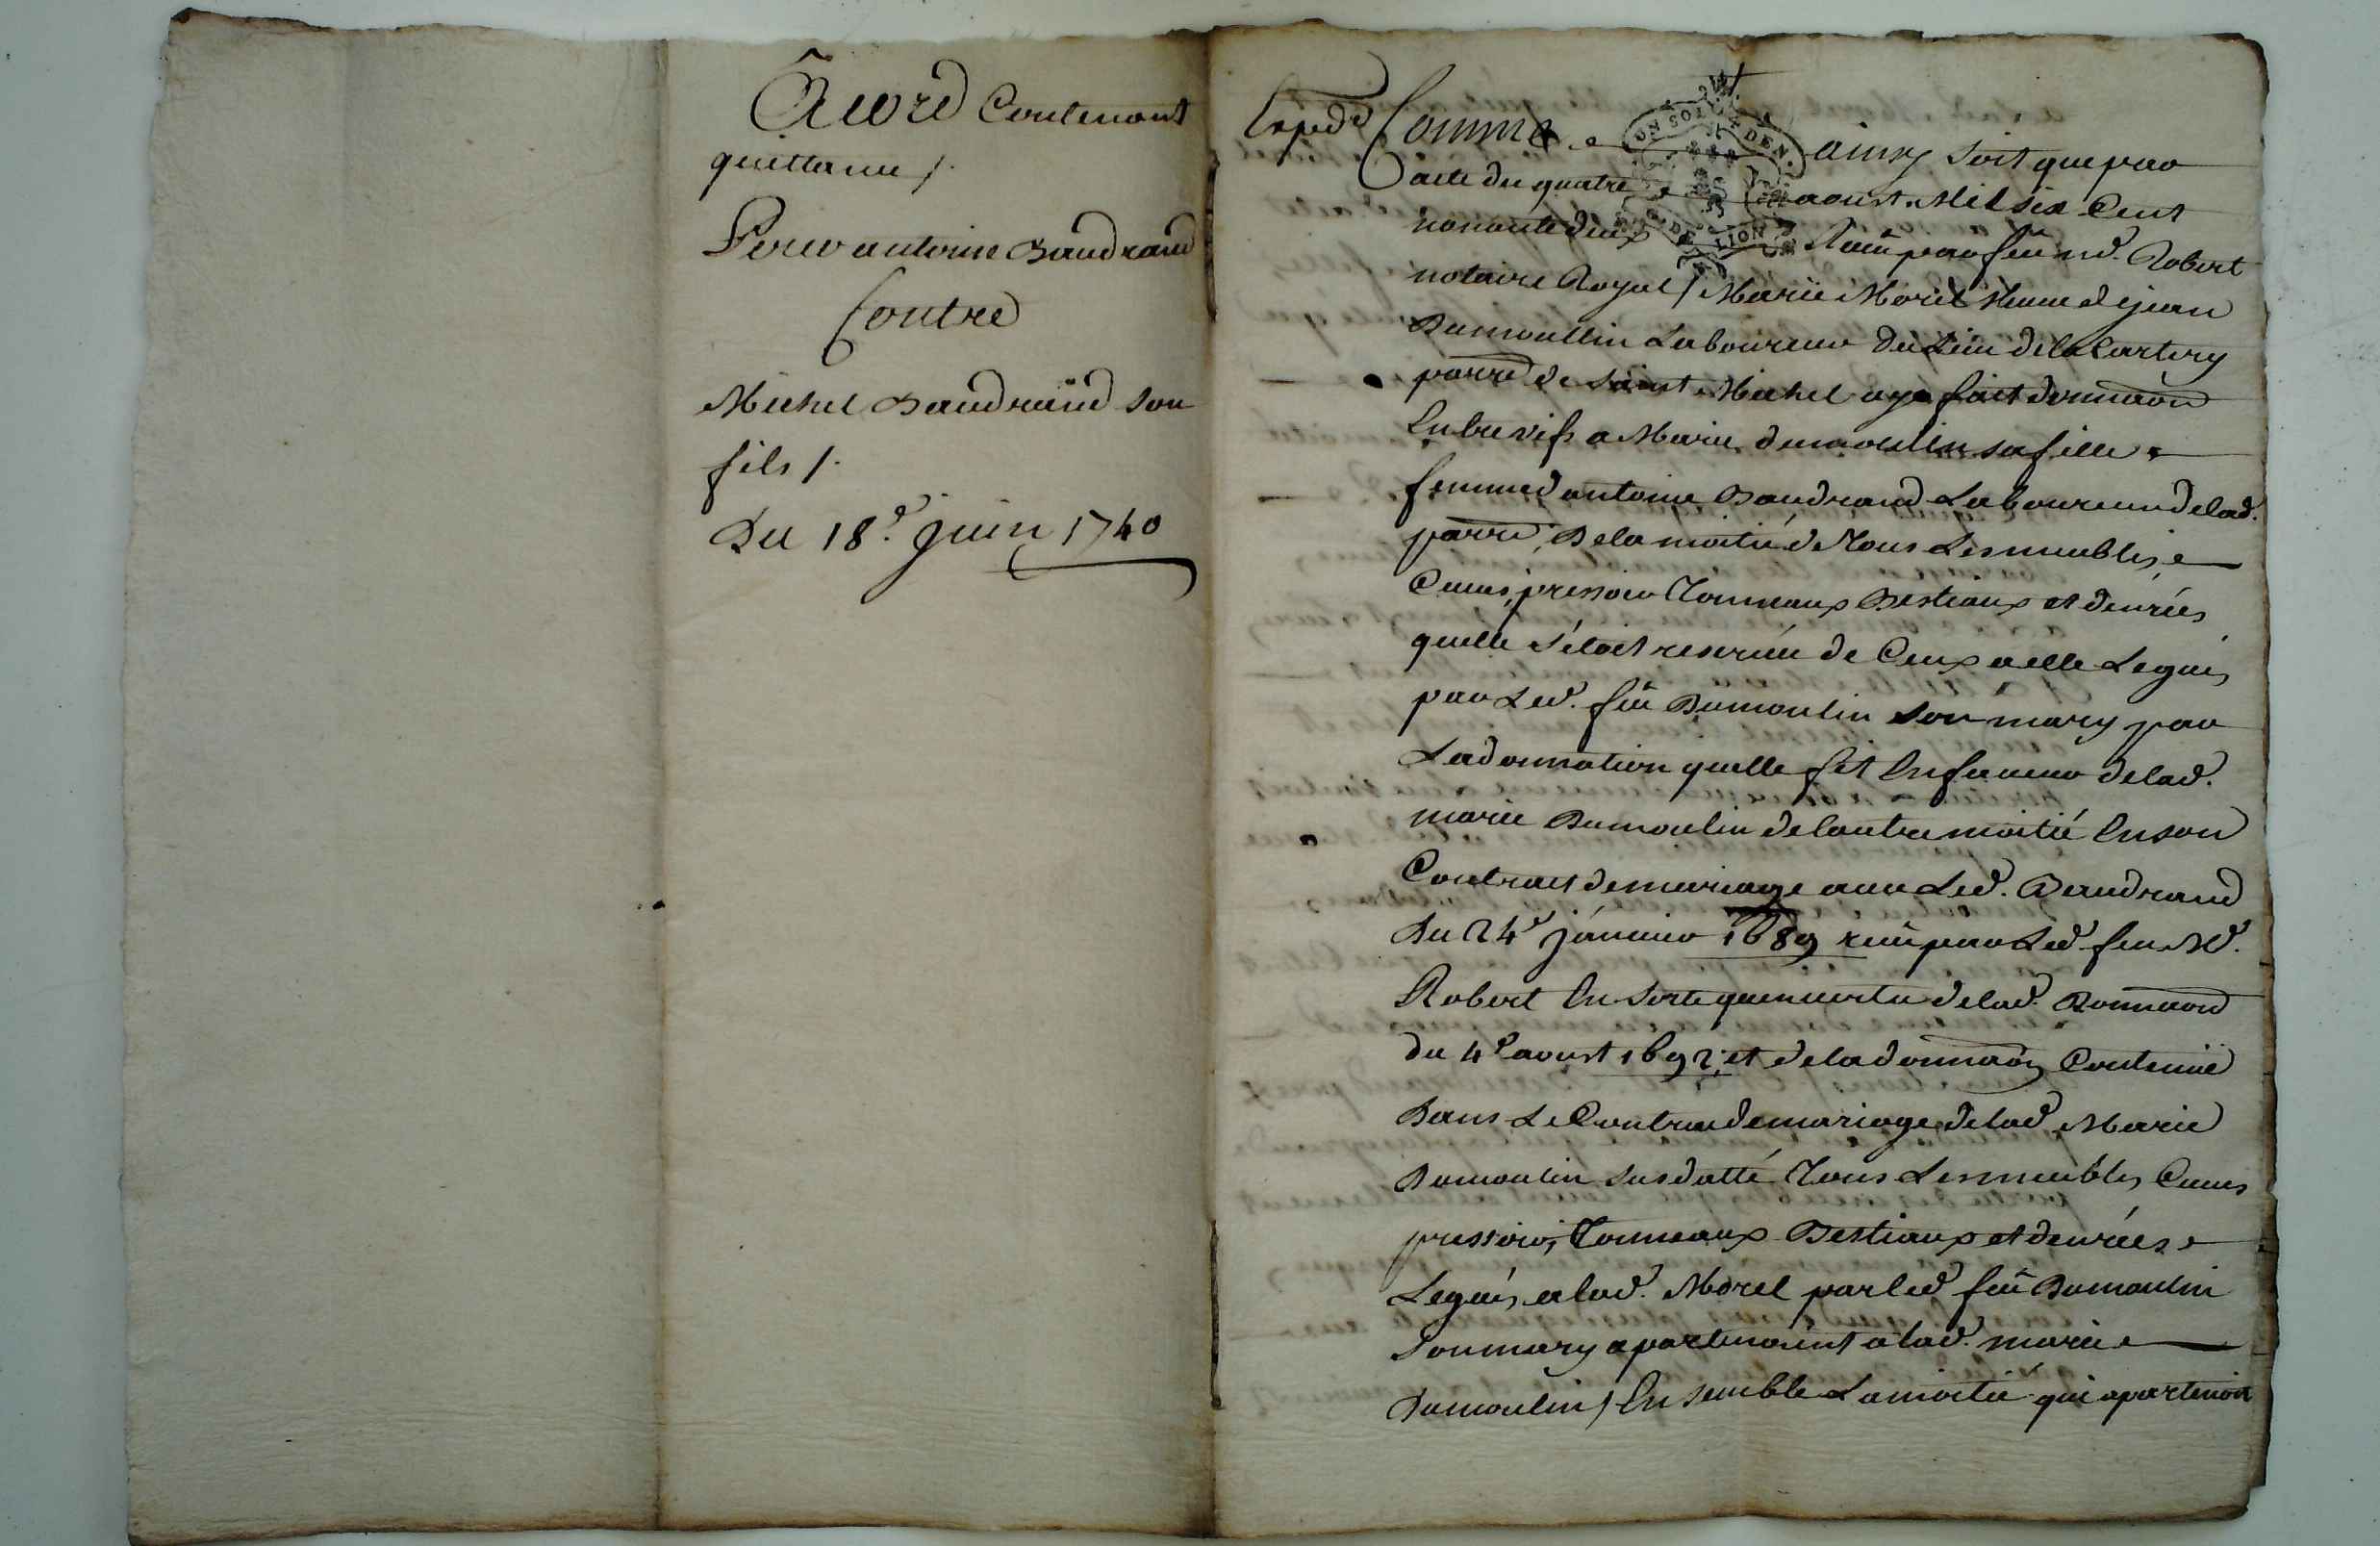 Acord Contenant
quittance /.
Pour antoine Baudrand
Contre
Michel Baudrand son
fils /.
Du 18e. Juin 1740
Expedé
Comme ainsy soit que par
acte du quatre aoust Mil six Cent
nonante deux Receu par feu me. Robert
notaire Royal / Marie Morel veuve de jean
Dumoullin Laboureur du Lieu de la Cartery
parre. de saint Michel aye fait donnaõn
Entre vifs a Marie dumoulin sa fille
femme d'antoine Baudrand Laboureur de lad.
parre. De la moitié de Tous Les meubles
Cuves, pressoir Tonneaux Bestiaux et denrées
quelle s'étoit reservée de Ceux a elle Legués
par Led. feu Dumoulin son mary par
La donnation quelle fit En faveur de lad.
marie Dumoulin de lautre moitié En son
Contract de mariage avec Led. Baudrand
Du 24e janvier 1689 receu par Led. feu Me.
Robert En sorte quen vertu de lad. Donnaõn
du 4e aoust 1692, et de la donnaõn Contenüe
Dans Le Contract de mariage de lad. Marie
Dumoulin susdatté Tous Les meubles Cuves
pressoir, Tonneaux Bestiaux et denrées
Legués a lad. Morel par led. feu Dumoulin
Son mary apartenoient a lad. marie
Dumoulin / Ensemble La moitié qui apartenoit
UN SOL 4 DEN.
G. DE LION